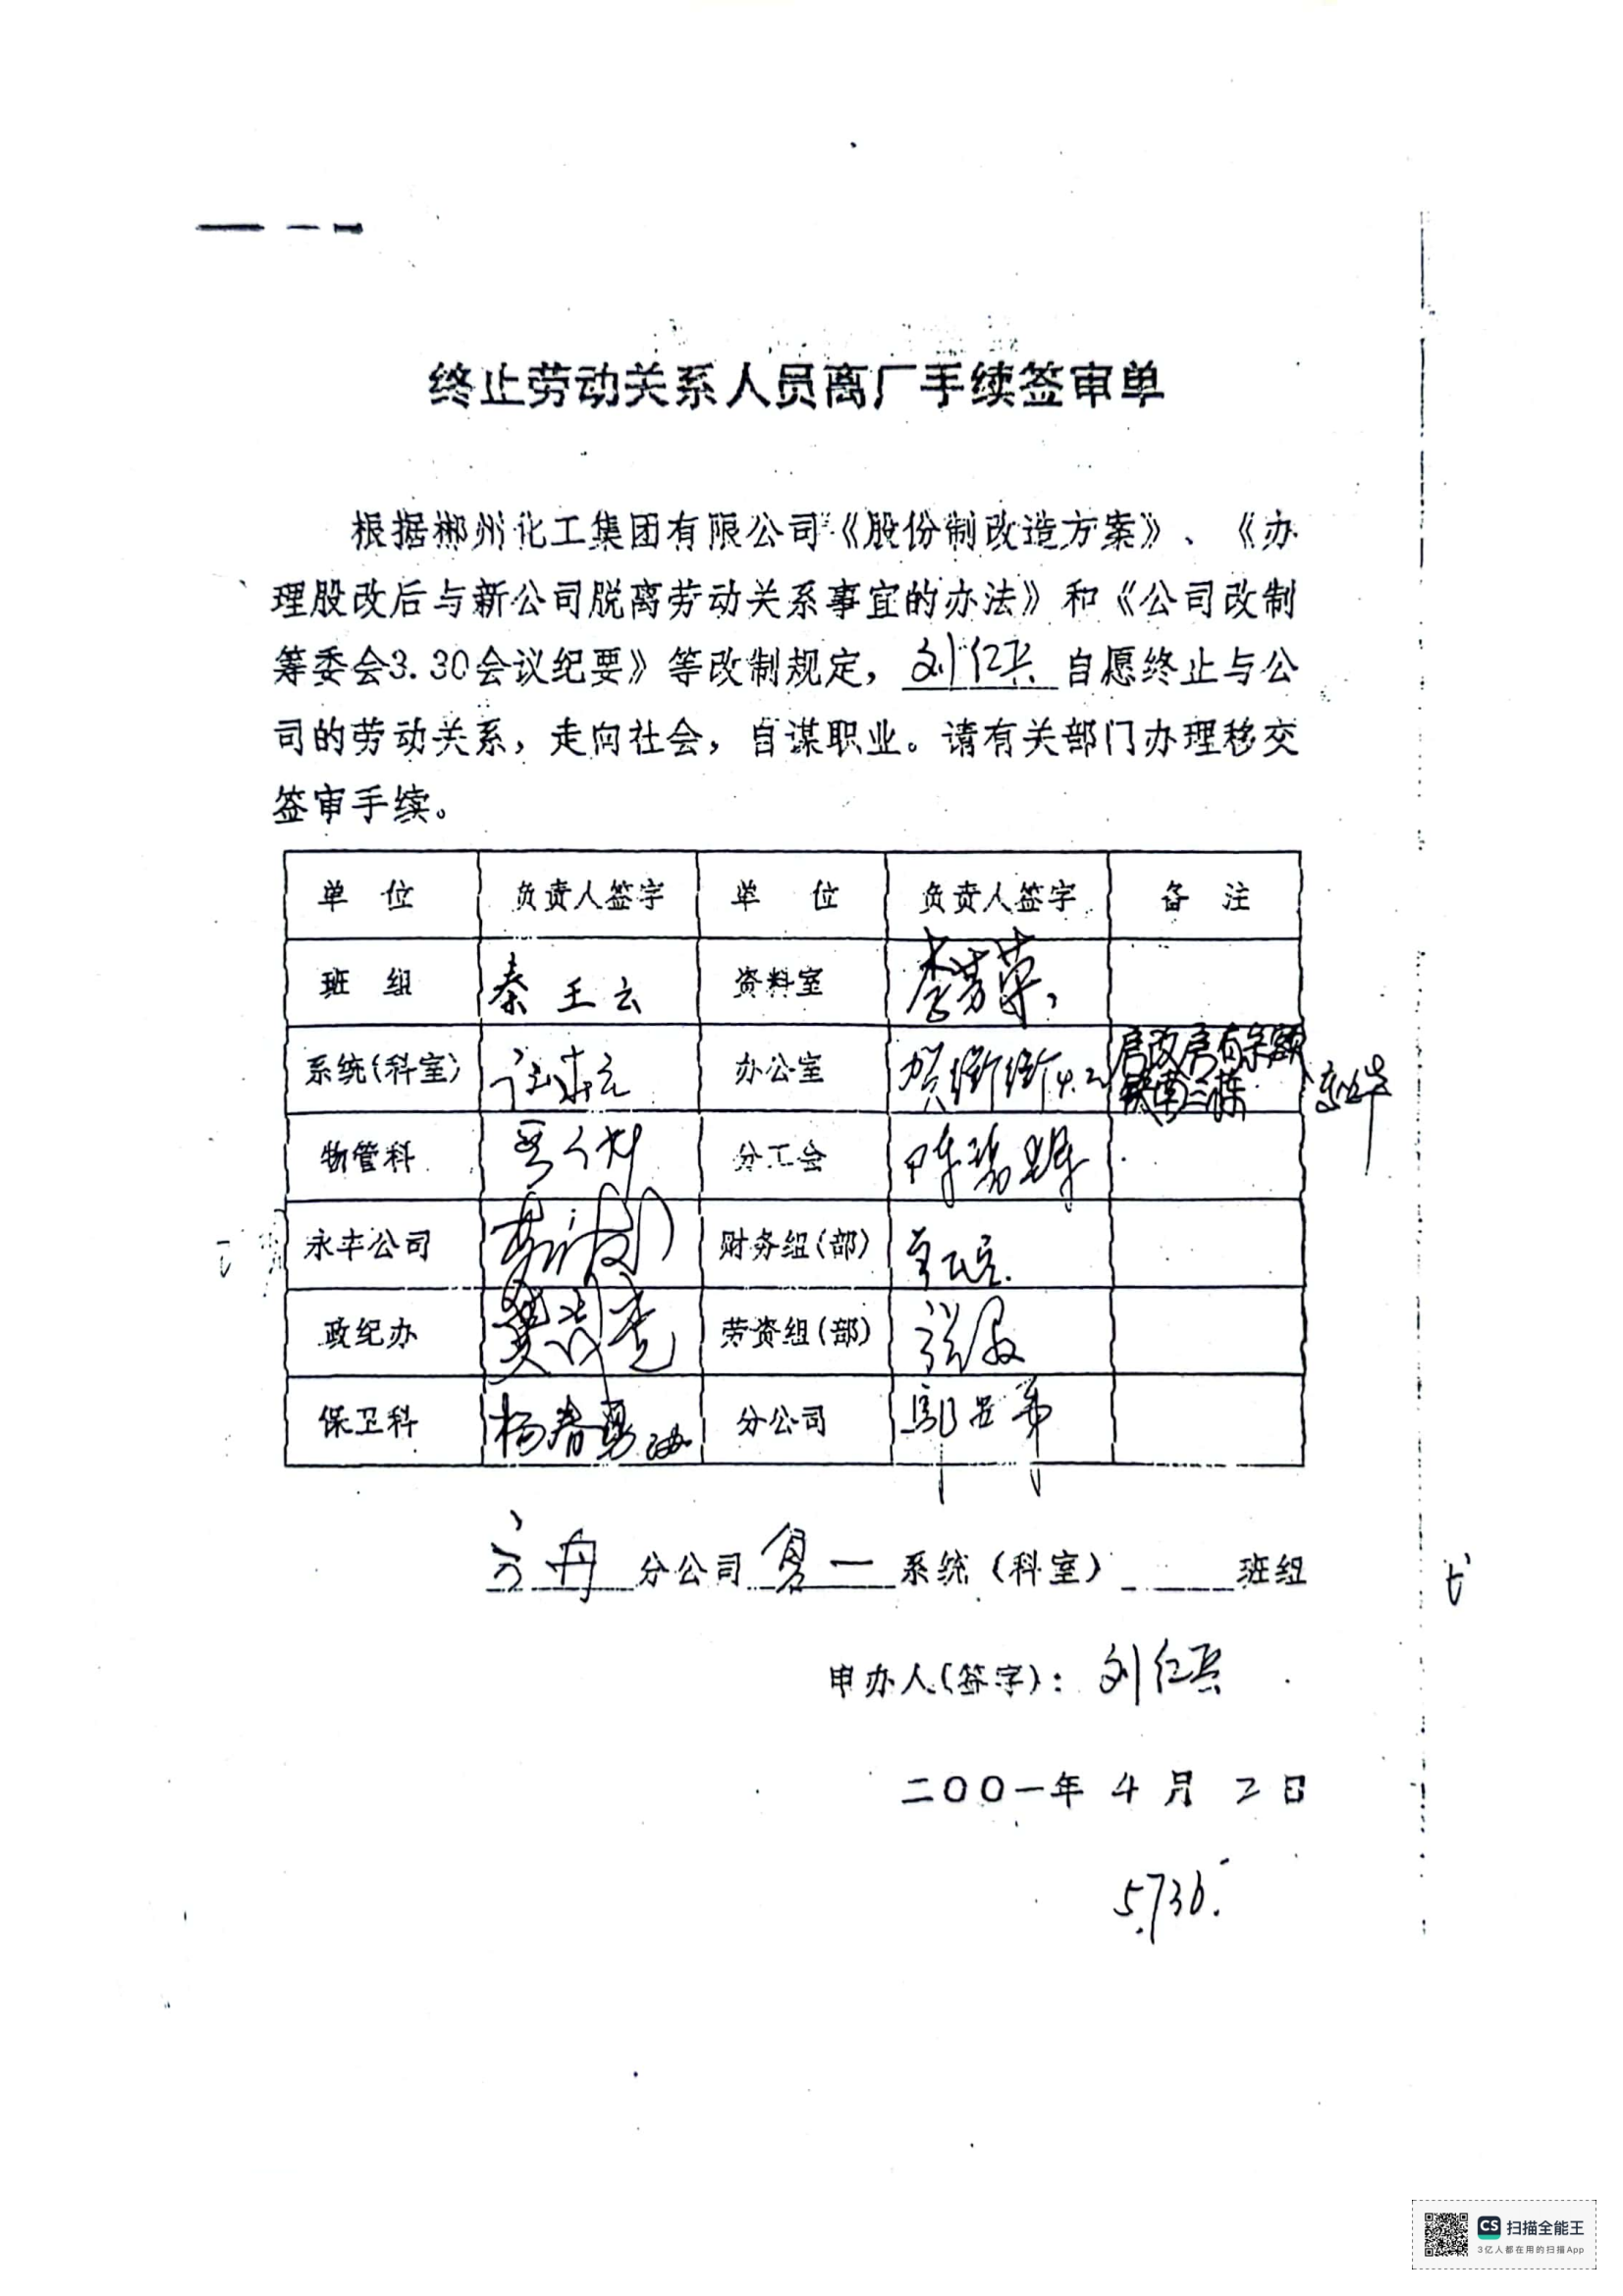 终止劳动关系人员离厂手续签审单
根据郴州化工集团有限公司《股份制改造方案》、《办
理股改后与新公司脱离劳动关系事宜的办法》和《公司改制
筹委会3.30会议纪要》等改制规定，刘仁兵自愿终止与公
司的劳动关系，走向社会，自谋职业。请有关部门办理移交
签审手续。
单 位 负责人签字 单 位 负责人签字 备 注
班 组 秦王云 资料室 李芳荣
系统(科室) 办公室 贺衡衡 4.2 房改房有余额
铁南二栋
物管科 分工会 陈碧辉
永丰公司 财务组(部)
政纪办 劳资组(部)
保卫科 杨春勇 分公司
方舟 分公司 一 系统（科室） 班组
申办人(签字)：刘仁兵
二〇〇一年 4 月 2 日
5736.
CS 扫描全能王
3亿人都在用的扫描App